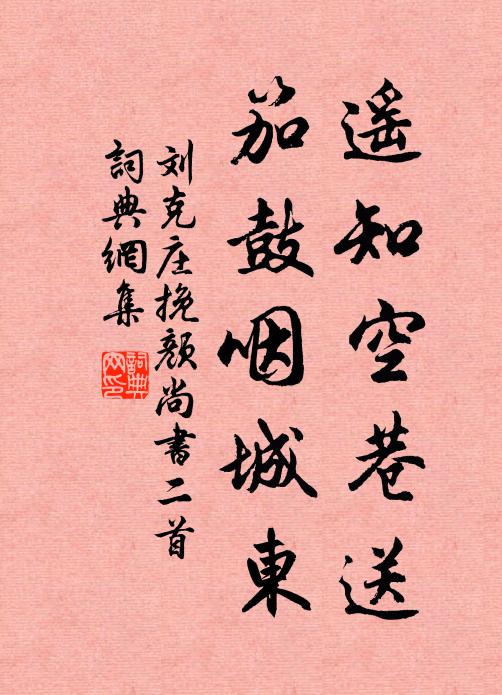 遥知空巷送
笳鼓咽城東
刘克庄挽颜尚書二首
詞典網集
詞典網印